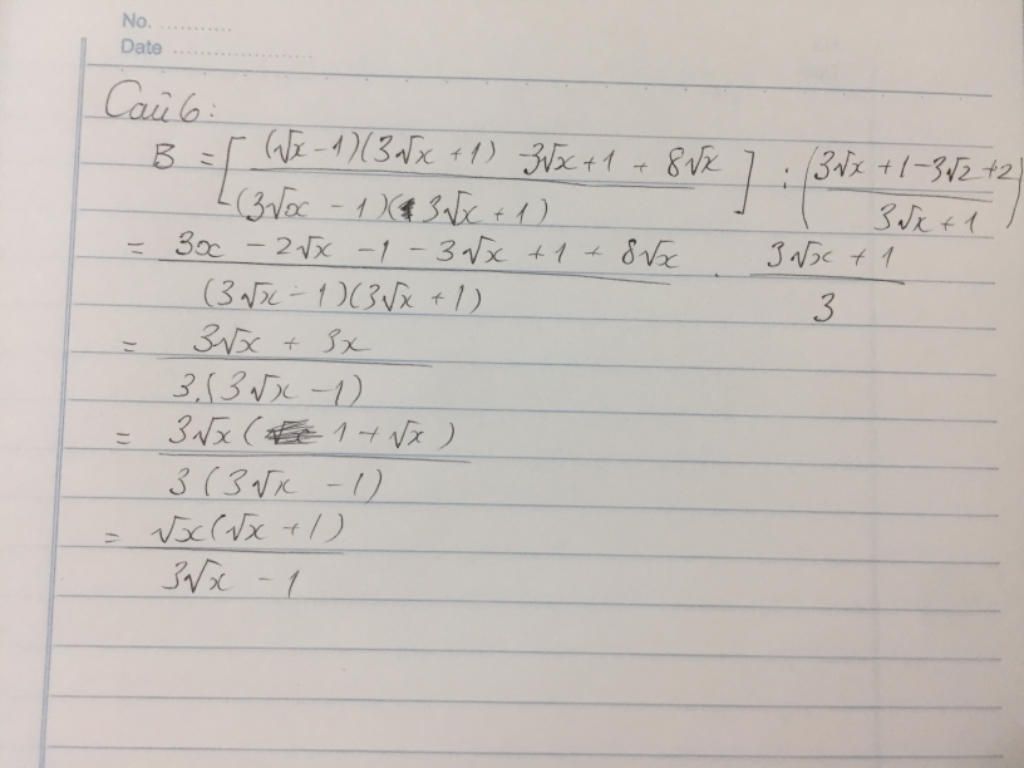 No. ............
Date ......................
Caii 6:
B = [ (√x - 1)(3√x + 1) 3√x + 1 + 8√x / (3√x - 1)(3√x + 1) ] : ( 3√x + 1 - 3√2 + 2 / 3√x + 1 )
= 3x - 2√x - 1 - 3√x + 1 + 8√x / (3√x - 1)(3√x + 1) . 3√x + 1 / 3
= 3√x + 3x / 3.(3√x - 1)
= 3√x ( 1 + √x ) / 3 (3√x - 1)
= √x(√x + 1) / 3√x - 1